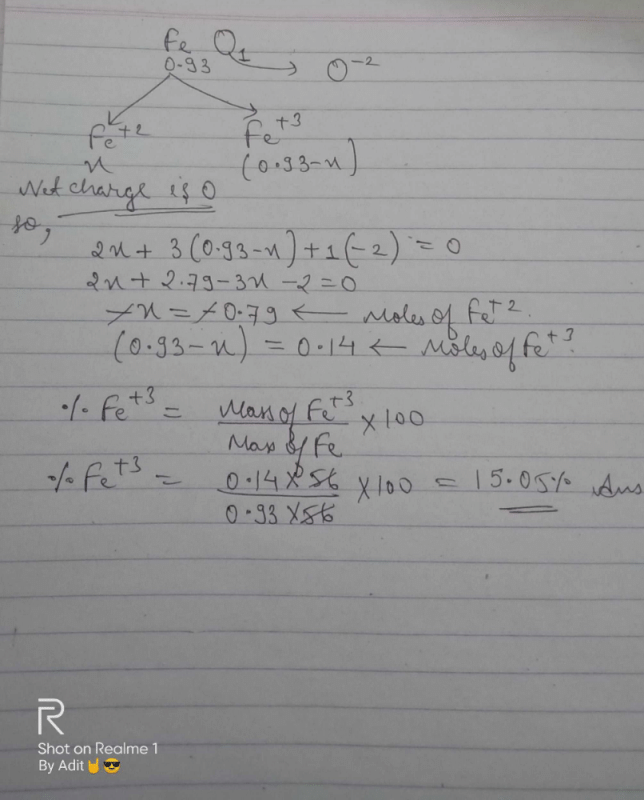 Fe 0.93 O1 → O⁻²
Fe⁺² Fe⁺³
x (0.93-x)
Net charge is 0
so,
2x + 3(0.93-x) + 1(-2) = 0
2x + 2.79 - 3x - 2 = 0
-x = -0.79 ← Moles of Fe⁺².
(0.93-x) = 0.14 ← Moles of Fe⁺³.
% Fe⁺³ = Mass of Fe⁺³ / Mass of Fe × 100
% Fe⁺³ = 0.14 × 56 / 0.93 × 56 × 100 = 15.05% Ans
R
Shot on Realme 1
By Adit🤘😎